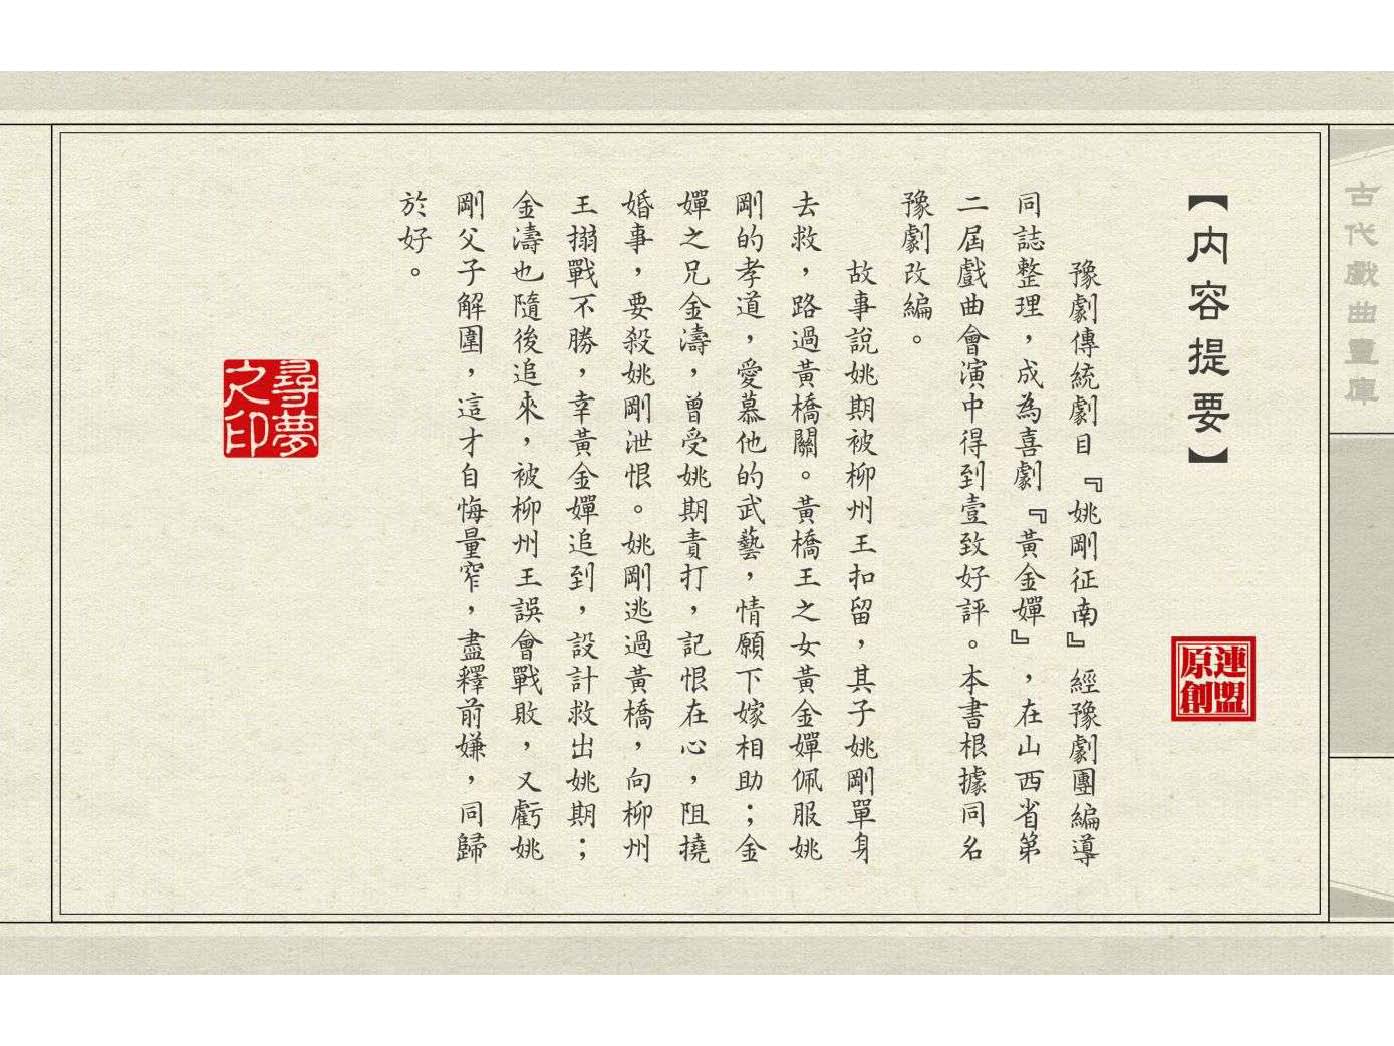 古代戲曲畫庫
【內容提要】
連盟原創
豫劇傳統劇目『姚剛征南』經豫劇團編導
同誌整理，成為喜劇『黃金嬋』，在山西省第
二屆戲曲會演中得到壹致好評。本書根據同名
豫劇改編。
故事說姚期被柳州王扣留，其子姚剛單身
去救，路過黃橋關。黃橋王之女黃金嬋佩服姚
剛的孝道，愛慕他的武藝，情願下嫁相助；金
嬋之兄金濤，曾受姚期責打，記恨在心，阻撓
婚事，要殺姚剛泄恨。姚剛逃過黃橋，向柳州
王搦戰不勝，幸黃金嬋追到，設計救出姚期；
金濤也隨後追來，被柳州王誤會戰敗，又虧姚
剛父子解圍，這才自悔量窄，盡釋前嫌，同歸
於好。
尋夢之印